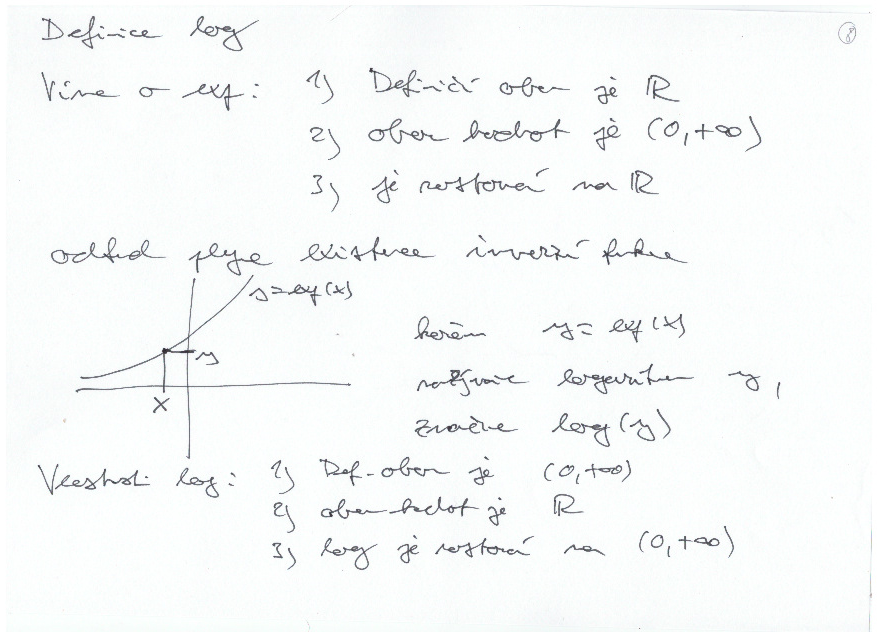 Definice log
8
Víme o exp: 1) Definiční obor je ℝ
2) obor hodnot je (0,+∞)
3) je rostoucí na ℝ
odtud plyne existence inverzní funkce
y=exp(x)
y
x
kořen y = exp(x)
nazýváme logaritmem y,
značíme log(y)
Vlastnosti log: 1) Def. obor je (0,+∞)
2) obor hodnot je ℝ
3) log je rostoucí na (0,+∞)